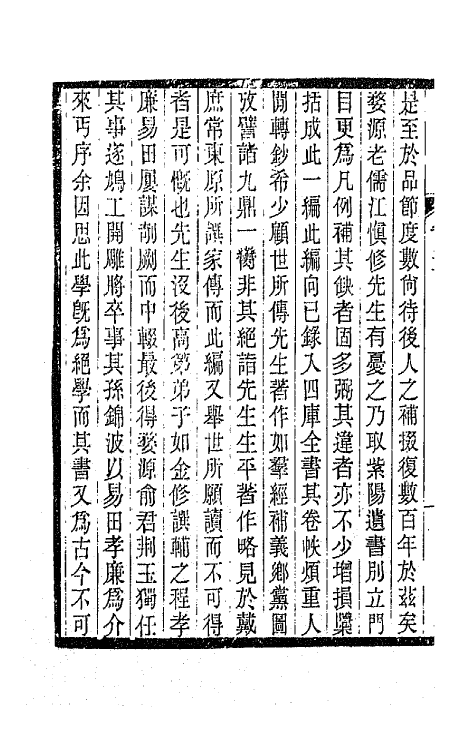 是至於品節度數尙待後人之補掇復數百年於茲矣
婺源老儒江愼修先生有憂之乃取紫陽遺書別立門
目更爲凡例補其缺者固多弼其違者亦不少增損檃
括成此一編此編向已錄入四庫全書其卷帙煩重人
閒轉鈔希少顧世所傳先生著作如羣經補義鄉黨圖
攷譬諸九鼎一臠非其絕詣先生生平著作略見於戴
庶常東原所譔家傳而此編又舉世所願讀而不可得
者是可慨也先生沒後高第弟子如金修譔輔之程孝
廉易田屢謀剞劂而中輟最後得婺源俞君荆玉獨任
其事遂鳩工開雕將卒事其孫錦波以易田孝廉爲介
來丐序余因思此學旣爲絕學而其書又爲古今不可